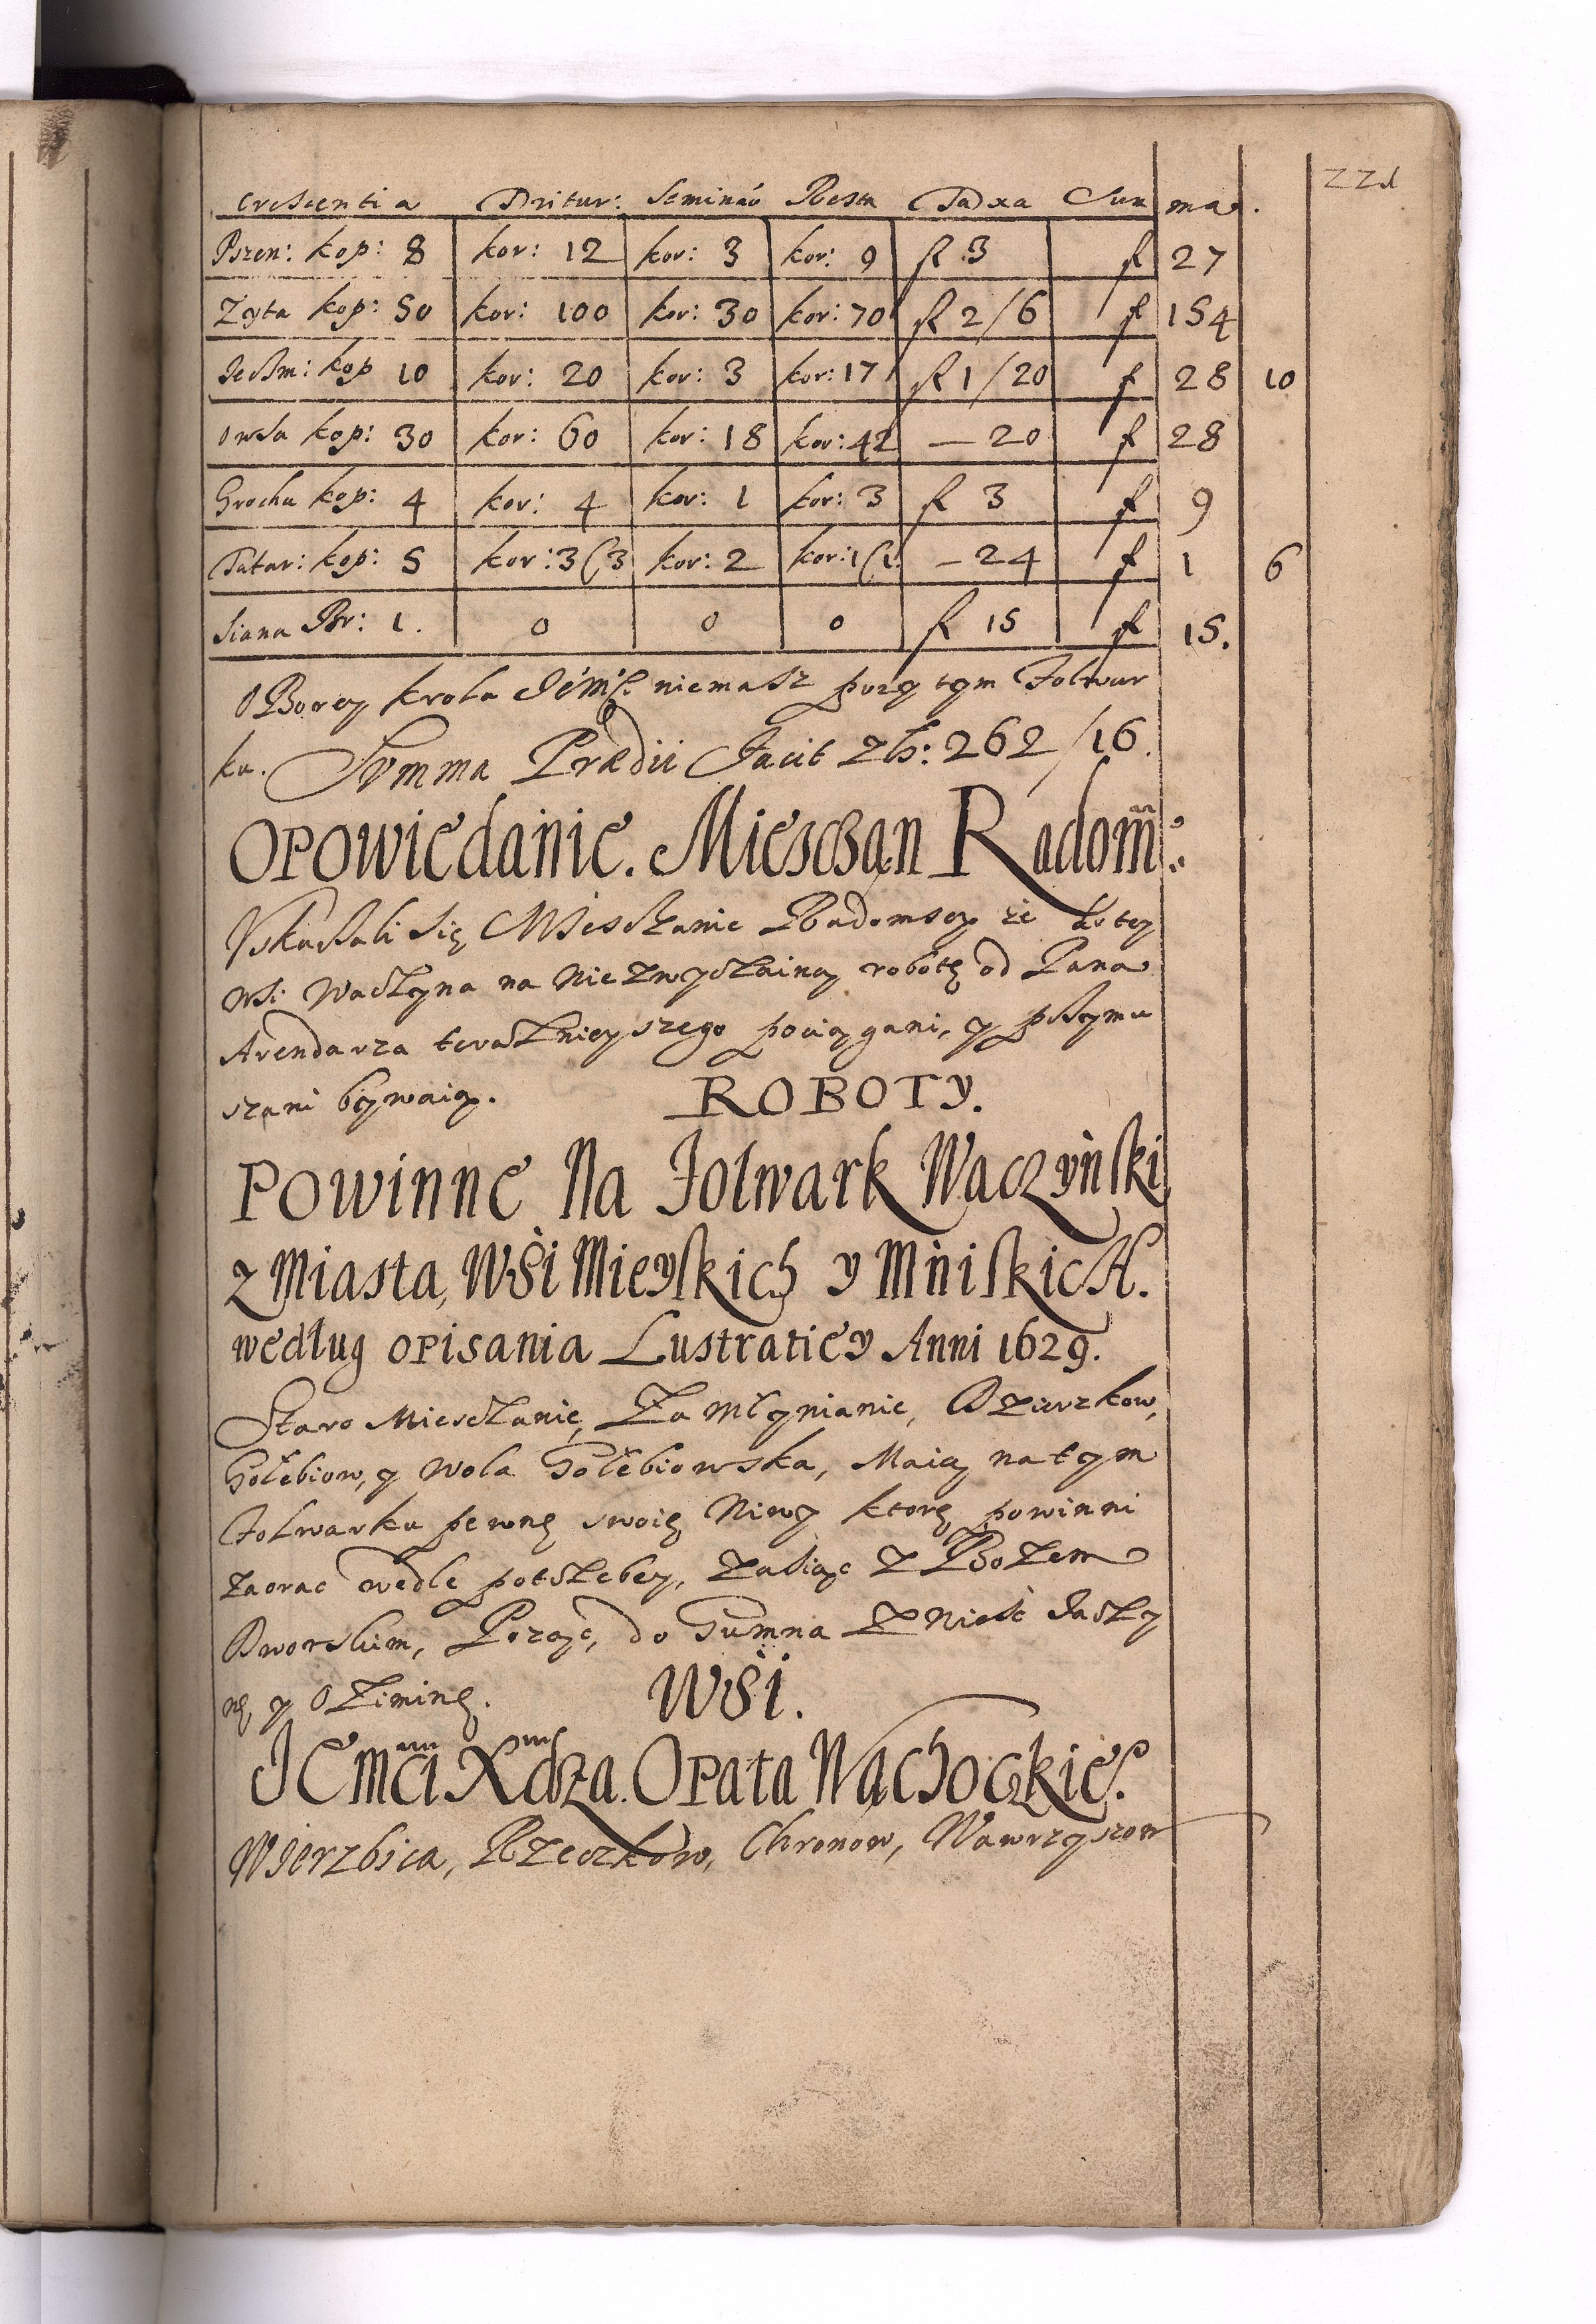 221
Crescentia Tritur: Seminao Resta Taxa Summa.
Pszen: kop: 8 kor: 12 kor: 3 kor: 9 fl 3 fl 27
Zyta kop: 50 kor: 100 kor: 30 kor: 70 fl 2/6 fl 154
Jeczm: kop 10 kor: 20 kor: 3 kor: 17 fl 1/20 f 28 10
Owsa kop: 30 kor: 60 kor: 18 kor: 42 — 20 f 28
Grochu kop: 4 kor: 4 kor: 1 kor: 3 fl 3 f 9
Tatar: kop: 5 kor: 3 (3 kor: 2 kor: 1 (1. – 24 f 1 6
Siana Br: 1. 0 0 0 fl 15 fl 15.
OBorey krola niemasz przy tym Folwar
ku. Summa Prædii Facit zł: 262/16.
OPOwiedanie. Miesczan Radom:
Uskarzali się Miesczanie Radomscy że do tey
wsi Waczyna na Niezwyczainą robotę od Pana
Arendarza teraznieyszego pociągani, y przymu
szani bywaią. ROBOTY.
POwinne Na Folwark Waczynski
z Miasta, WSi Mieyskich y MniskicH.
według OPisania Lustratiey Anni 1629.
Staro Miesczanie, Zamłynianie, Dzierzkow,
Gołębiow, y Wola Gołębiowska, Maią na tym
Folwarku pewne swoie Niwy ktore powinni
zaorac wedle potrzeby, zasiac zBozem
Dworskim, Pozac, do Gumna zniesc Jarzy
nę, y Oziminę. WSi.
JEmci Xdza OPata WachOckie°.
Wierzbica, Rzeczkow, Chronow, Wawrzyszow